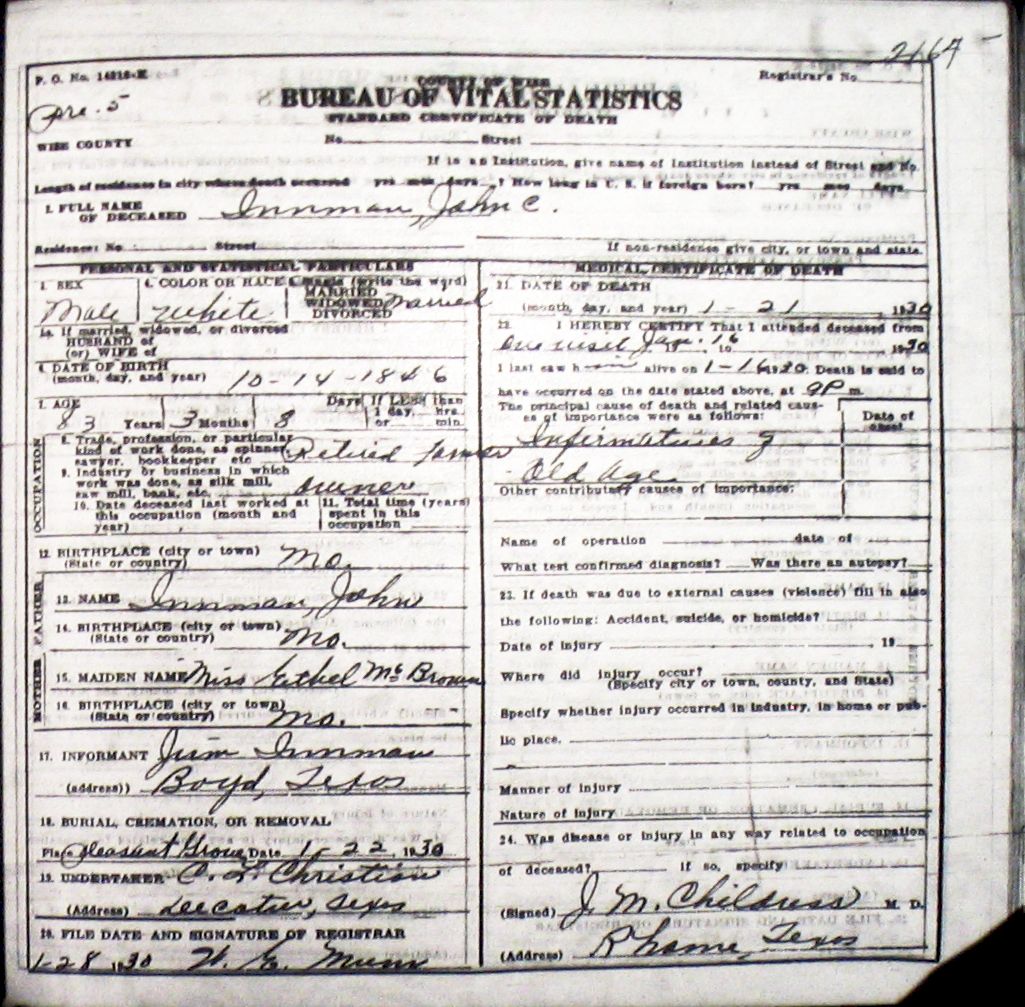 2164
P. O. No. 14218-E
COUNTY OF WISE
Registrar's No.
Pre. 5
BUREAU OF VITAL STATISTICS
STANDARD CERTIFICATE OF DEATH
WISE COUNTY
No. Street
If in an Institution, give name of Institution instead of Street and No.
Length of residence in city where death occurred yrs mos days ? How long in U. S. if foreign born? yrs mos days
1. FULL NAME OF DECEASED Innman, John C.
Residence: No. Street
If non-residence give city, or town and state.
PERSONAL AND STATISTICAL PARTICULARS
3. SEX
Male
4. COLOR OR RACE
White
(write the word)
MARRIED
WIDOWED
DIVORCED
Married
5a. If married, widowed, or divorced
HUSBAND of
(or) WIFE of
6. DATE OF BIRTH
(month, day, and year) 10-14-1846
7. AGE
83 Years 3 Months 8 Days
If LESS than
1 day, hrs.
or min.
OCCUPATION
8. Trade, profession, or particular
kind of work done, as spinner,
sawyer, bookkeeper etc Retired Farmer
9. Industry or business in which
work was done, as silk mill,
saw mill, bank, etc. owner
10. Date deceased last worked at
this occupation (month and
year)
11. Total time (years)
spent in this
occupation
12. BIRTHPLACE (city or town)
(State or country) Mo.
FATHER
13. NAME Innman, John
14. BIRTHPLACE (city or town)
(State or country) Mo.
MOTHER
15. MAIDEN NAME Miss Ethel Mc Brown
16. BIRTHPLACE (city or town)
(State or country) Mo.
17. INFORMANT Jim Innman
(address)) Boyd, Texas
18. BURIAL, CREMATION, OR REMOVAL
Place Pleasant Grove Date 1-22, 1930
19. UNDERTAKER Christian
(Address) Deecatur, Texas
20. FILE DATE AND SIGNATURE OF REGISTRAR
1-28 1930
MEDICAL CERTIFICATE OF DEATH
21. DATE OF DEATH
(month, day, and year) 1-21, 1930
22. I HEREBY CERTIFY That I attended deceased from
One visit Jan. 16 19 to 1930
I last saw him alive on 1-16 1930. Death is said to
have occurred on the date stated above, at 9P m.
The principal cause of death and related causes
of importance were as follows:
Date of
onset
Infirmatures of
Old Age
Other contributary causes of importance:
Name of operation date of
What test confirmed diagnosis? Was there an autopsy?
23. If death was due to external causes (violence) fill in also
the following: Accident, suicide, or homicide?
Date of injury 19
Where did injury occur?
(Specify city or town, county, and State)
Specify whether injury occurred in industry, in home or pub-
lic place.
Manner of injury
Nature of injury
24. Was disease or injury in any way related to occupation
of deceased? if so, specify
(Signed) J. M. Childress M. D.
(Address) Rhome, Texas